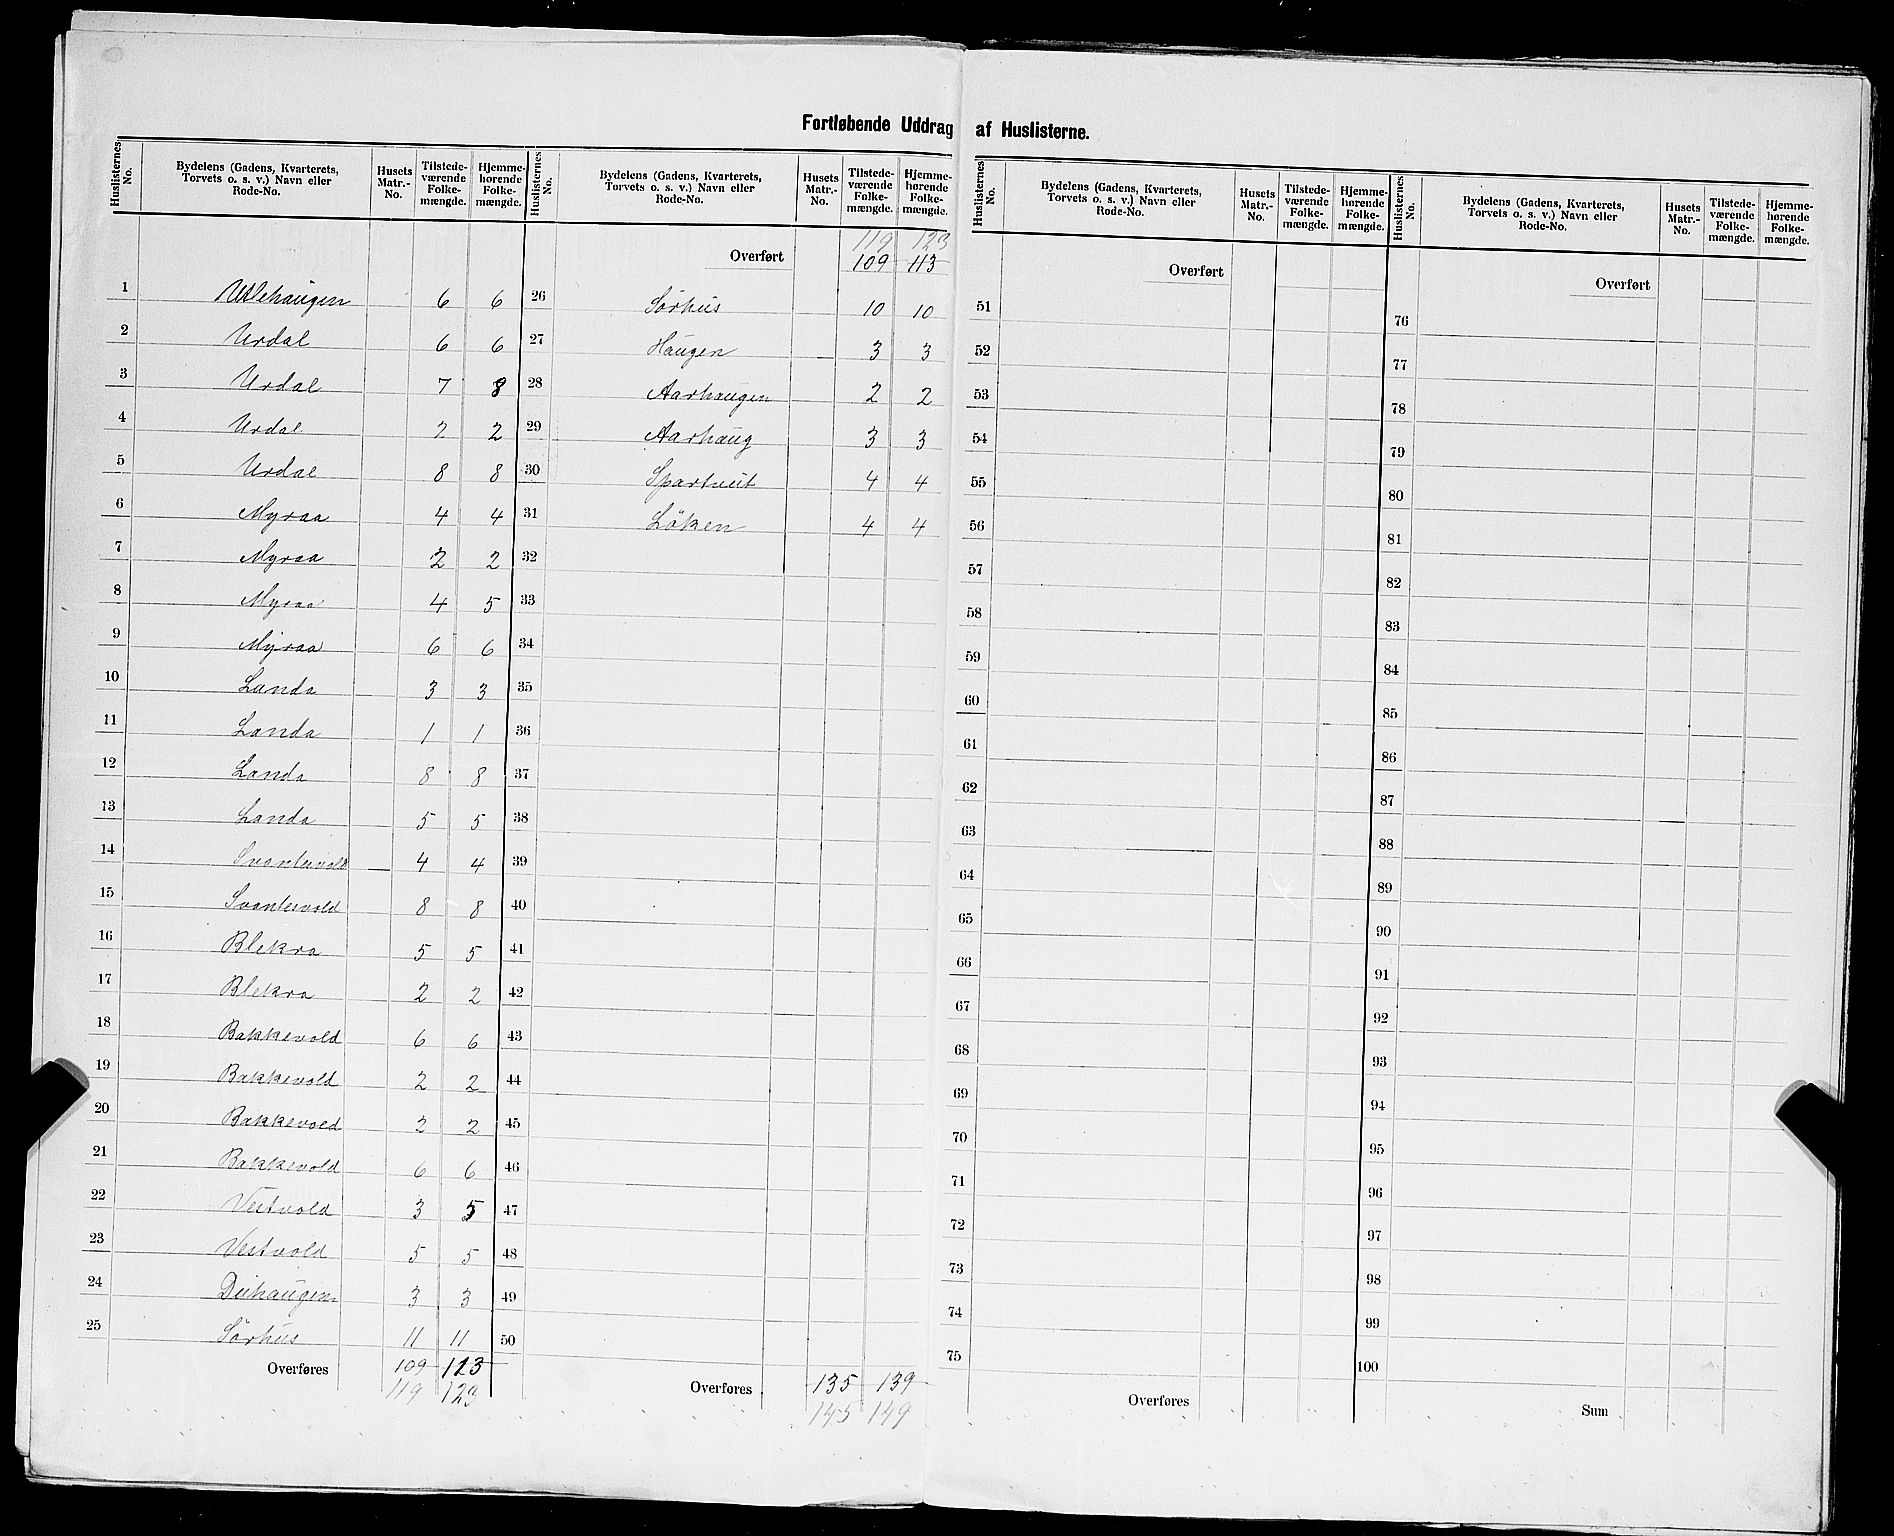 Fortløbende Uddrag af Huslisterne.
Huslisternes No. Bydelens (Gadens, Kvarterets, Torvets o. s. v.) Navn eller Rode-No. Husets Matr.-No. Tilstedeværende Folkemængde. Hjemmehørende Folkemængde.
1 6 6
2 Urdal 6 6
3 Urdal 7 8
4 Urdal 2 2
5 Urdal 8 8
6 Myraa 4 4
7 Myraa 2 2
8 Myraa 4 5
9 Myraa 6 6
10 Landa 3 3
11 Landa 1 1
12 Landa 8 8
13 Landa 5 5
14 Svantesvold 4 4
15 Svantesvold 8 8
16 Blekra 5 5
17 Blekra 2 2
18 Bakkevold 6 6
19 Bakkevold 2 2
20 Bakkevold 2 2
21 Bakkevold 6 6
22 Vestvold 3 5
23 Vestvold 5 5
24 3 3
25 Sörhus 11 11
Overføres 109 113
119 123
Huslisternes No. Bydelens (Gadens, Kvarterets, Torvets o. s. v.) Navn eller Rode-No. Husets Matr.-No. Tilstedeværende Folkemængde. Hjemmehørende Folkemængde.
119 123
Overført 109 113
26 Sörhus 10 10
27 Haugen 3 3
28 Aarhaugen 2 2
29 Aarhaug 3 3
30 Spartveit 4 4
31 Löken 4 4
32
33
34
35
36
37
38
39
40
41
42
43
44
45
46
47
48
49
50
Overføres 135 139
145 149
Huslisternes No. Bydelens (Gadens, Kvarterets, Torvets o. s. v.) Navn eller Rode-No. Husets Matr.-No. Tilstedeværende Folkemængde. Hjemmehørende Folkemængde.
Overført
51
52
53
54
55
56
57
58
59
60
61
62
63
64
65
66
67
68
69
70
71
72
73
74
75
Overføres
Huslisternes No. Bydelens (Gadens, Kvarterets, Torvets o. s. v.) Navn eller Rode-No. Husets Matr.-No. Tilstedeværende Folkemængde. Hjemmehørende Folkemængde.
Overført
76
77
78
79
80
81
82
83
84
85
86
87
88
89
90
91
92
93
94
95
96
97
98
99
100
Sum